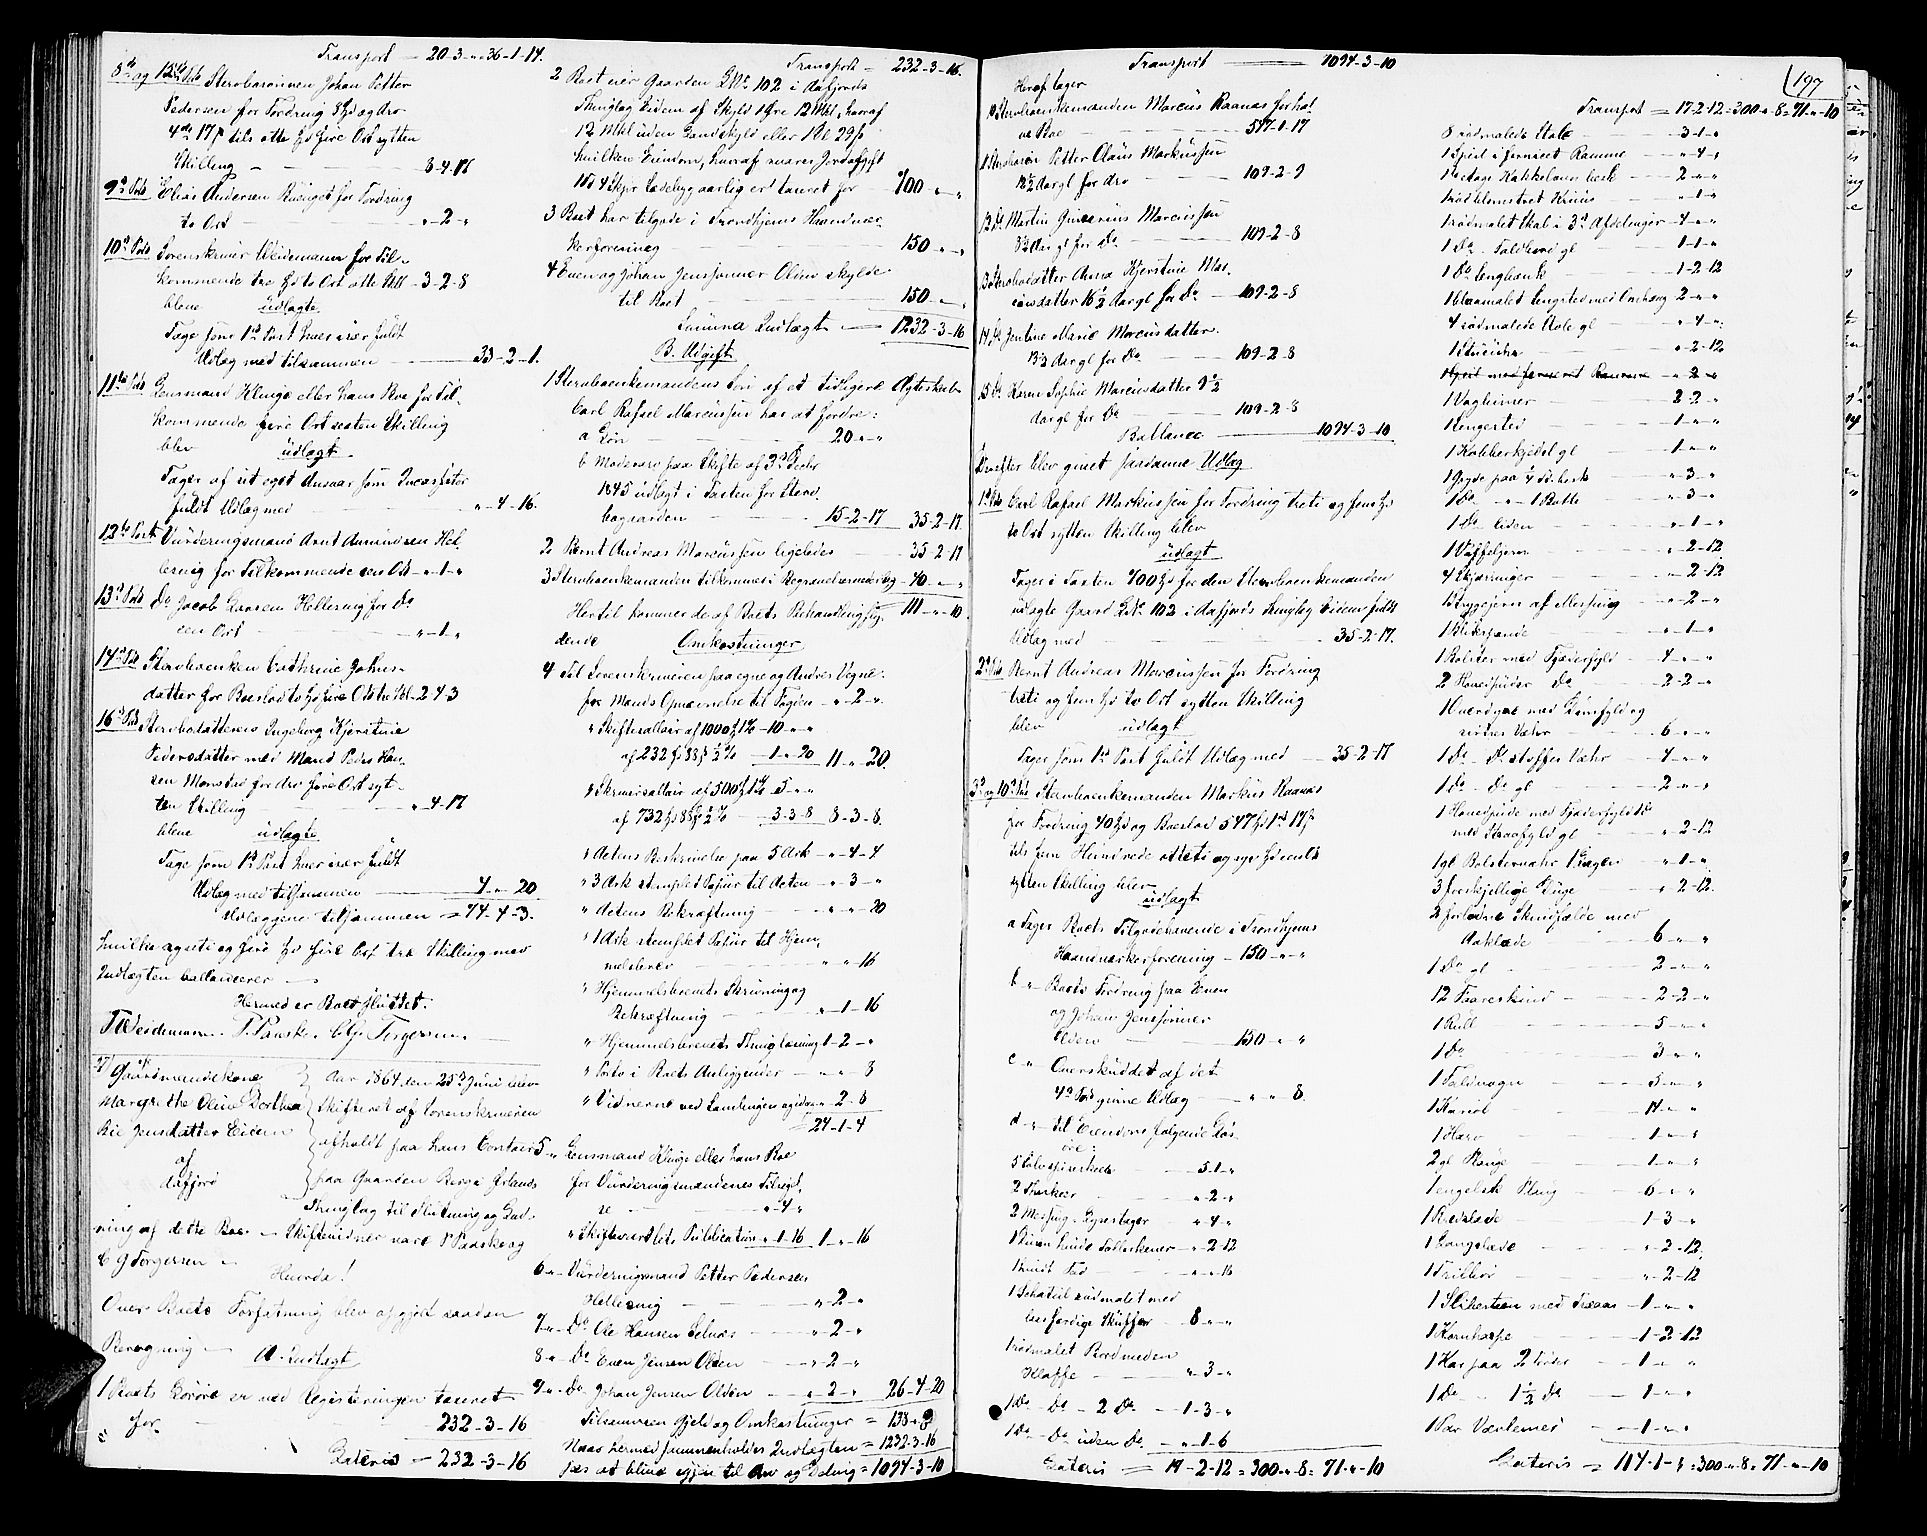 Transport - 20-3-"-36-1-14.
8de og 15de Post Stervbarønnen Johan Petter
Pedersen for Fordring 8 Spd og Arv
4 Ort 17 ß tils otte Spd fire Ort sytten
Skilling - 8-4-17
9de Post Elias Andersen for Fordring
to Ort - "-2-"
10de Post Sorenskriver Weidemann for Til-
kommende tre Spd to Ort otte Skill - 3-2-8
blev udlagte
Tage som 1ste Post hver især fuldt
Udlæg med tilsammen - 33-2-1.
11te Post Lensmand Klinge eller hans Boe for Til-
kommende fire Ort sexten Skilling
blev udlagt
Tager af sit eget Ansvar som Incassator
fuldt Udlæg med "-4-16.
12te Post Vurderingsmand Arnt Amundsen Hel-
lesvig for Tilkommende een Ort - "-1-"
13de Post Do Jacob Larsen Hellesvig for Do
een Ort "-1-"
14de Post Stervboenken Cathrine Johns-
datter for Boeslod to Spd fire Ort tre Skl - 2-4-3
16de Post Stervbodatteren Ingeborg Kjerstine
Pedersdatter med Mand Peder Han-
sen Monstad for Arv fire Ort syt-
ten Skilling "-4-17
blev udlagte
Tage som 1ste Post hver især fuldt
Udlæg med tilsammen 4-"-20
Udlæggene tilsammen = 44-4-3.
hvilke og fire Spd fire Ort tre Skilling med
Indtægten ballancerer -
Hermed er Boet sluttet.
T Weidemann. P. Paaske. C Torgersen.
Gaardmandskone
Margrethe Oline Dorthea
Bie Jensdatter Eiden
af
Aafjord
Aar 1864 den 25de Juni blev
Skifteret af Sorenskriveren
afholdt paa hans Contoir
paa Gaarden Berge Ørlands
Thinglag til Slutning og Lad-
ning af dette Boe. - Skiftevidner vare P Paaske og
C J Torgersen -
Hvorda!
Over Boets Forfatning blev afgjort saadan
Beregning - A. Indtægt
1 Boets Løsøre er ved Registeringen taxeret
for 232-3-16
Lateris - 232-3-16
Transport - 232-3-16.
2 Boet eier Gaarden LNo 102 i Aafjords
Thinglag Eiden af Skyld 1 Øre 12 Mkl, hvoraf
12 Mkl uden Landskyld eller
hvilken Eiendom, hvoraf svares Jordafgift
aarlig er taxeret for 700-"-"
3 Boet har tilgode i Trondhjems Haandvær-
kerforening 150-"-"
4 Even og Johan Jensønner Olden skylde
til Boet 150-"-"
Summa Indtægt - 1232-3-16
B. Udgift
1 Stervboenkemandens Søn af et tidligere Ægteskab
Carl Rafael Marcussen har at fordre:
a Løn 20-"-"
b Mødrearv paa Skifte af 3de Febr
1845 udlagt i Tasten for Stervb
bogaarden 15-2-17 35-2-17
2 Bernt Andreas Marcussen ligeledes - 35-2-17
3 Stervboenkemanden tilkommer i Begravelsesudlæg - 40-"-"
Hertil kommer de af Boets Behandling flg. 111-"-10.
dende Omkostninger
4 Til Sorenskriveren paa egne og Andres Vegne:
for Mands Opnævnelse til Fogden - "-2-"
" Skiftesallair af 1000 Spd 1% - 10-"-"
af 232 Spd 88 ß ½% 1-"-20 11-"-20.
" Skriversallair af 500 Spd 1% 5-"-"
af 732 Spd 88 ß ½% 3-3-8 8-3-8.
" Actens Beskrivelse paa 5 Ark - "-4-4
" 3 Ark stemplet Papir til Acten - "-3-"
" Actens Bekræftning "-"-20
" 1 Ark stemplet Papir til Hjem-
melsbrev "-"-16
" Hjemmelsbrevets Skrivning og
Bekræftning "-1-16
" Hjemmelsbrevets Thinglæsning 1-2-"
" Porto i Boets Anliggender - "-"-8
" Vidnerne ved Samlingen og idag - "-2-8
24-1-4
5 " Lensmand Klinge eller hans Boe
for Vurderingsmændenes Tilsigel-
se "-4-"
" Skifterettens Publication "-1-16 1-"-16
6 " Vurderingsmand Petter Pedersen
Hellesvig - "-2-"
7 " Do Ole Hansen Selnæs - "-2-"
8 " Do Even Jensen Olden - "-2-"
9 " Do Johan Jensen Olden - "-2-" 26-4-20
Tilsammen Gjeld og Omkostninger = 138-"-
Naar hermed sammenholdes Indtægten = 1232-3-16
sees at blive igjen til Arv og Deling = 1094-3-10
Transport 1094-3-10
Heraf tager
10 Stervboenkemanden Marcus Raanæs
ve Boe 547-1-17
11 Stervbosøn Petter Olaus Markussen
18½ Aar gl for Arv 109-2-9
12 Do Martin Marcussen
Aar gl for Do 109-2-8
13 Stervbodatter Anna Kjerstine Mar-
cusdatter 16½ Aar gl for Do 109-2-8
14 Do Jentine Marie Marcusdatter
13½ Aar gl for Do 109-2-8
15 Do Karen Sophie Marcusdatter 9½
Aar gl for Do 109-2-8
Ballance 1094-3-10
Derefter blev givet saadanne Udlæg
1ste Post Carl Rafael Markussen for Fordring treti og fem Spd
to Ort sytten Skilling blev
udlagt
Tager i Taxten 700 Spd for den Stervboenkemanden
udlagte Gaard LNo 102 i Aafjords Thinglag Eiden fuldt
Udlæg med 35-2-17.
2den Post Bernt Andreas Marcussen for Fordring
treti og fem Spd to Ort sytten Skilling
blev udlagt
Tager som 1ste Post fuldt Udlæg med 35-2-17
3de og 10de Post Stervboenkemanden Markus Raanæs
for Fordring 40 Spd og Boeslod 547 Spd 1 Ort 17 ß
tils fem Hundrede otteti og syv Spd een Ort
sytten Skilling blev
udlagt
a Tager Boets Tilgodehavende i Trondhjems
Haandværkerforening - 150-"-"
b " Boets Fordring paa Even
og Johan Jensønner
Olden 150-"-"
c " Overskuddet af det
4de Post givne Udlæg - "-"-8.
d " til Eiendom følgende Løs-
øre:
5 Sølv spiseskeer 5-1-"
2 Theskeer "-2-"
2 Messing-Lysestager "-4-"
"-2-12
"-"-16
1 Schatul rødmalet med
Skuffer - 8-"-"
1 rødmalet Bord med en
Klaffe "-3-"
1 Do - Do - 2 Do - 1-3-"
1 Do - Do uden Do - "-1-6
Lateris = 17-2-12 = 300-"-8 = 71-"-10
197
Transport = 17-2-12 = 300-"-8 = 71-"-10
8 rødmalede Stole 3-1-"
1 Speil i ferniset Ramme "-4-"
2-"-"
1 rødblomstret Kruus "-1-"
1 rødmalet Skab i 3de Afdelinger - 4-"-"
1 Do Foldbord gl 1-1-"
1 Do Sengbænk 1-2-12
1 blaamalet Sengsted med Omhæng 2-"-"
4 rødmalede Stole gl "-4-"
"-2-12
1 Speil med ferniset Ramme "-2-"
1 Vaghimer 2-2-"
1 Sengested 1-"-"
1 Kobberkjedel gl 1-"-"
1 Gryde paa "-3-"
1 Do - " - 1 Botte "-3-"
1 Do liden "-1-"
1 Vaffeljern "-2-12
4 Skjæringer "-2-12
1 Strygejern af Messing "-2-"
1 Blikspande "-1-"
1 Bolster med Fjæderfyld 4-"-"
2 Hovedpuder Do 2-2-"
1 Overdyne med Duunfyld og
Vahr 6-"-"
1 Do Do stoffes Vahr 4-"-"
1 Do - Do gl 2-"-"
1 Hovedpude med Fjæderfyld
med Straafyld gl "-2-12
1 gl Bolstervahr 1 Lagen "-1-"
3 forskjellige Duge "-2-12.
2 forlorne Skindfælde med
Aaklæde 6-"-"
1 Do gl 2-"-"
12 Faareskind 2-2-"
1 Rull 5-"-"
1 Do 3-"-"
1 Faldvogn 5-"-"
1 Kariol 14-"-"
1 Harv 1-"-"
2 gl Plouge 1-"-"
1 engelsk Ploug 6-"-"
1 Bredslæde 1-3-"
1 Langslæde "-2-12.
1 Trillebør "-2-12
1 Slibesteen med Træaas 1-"-"
1 Kornharpe 1-2-12
1 Kar paa 2 Tønder 1-"-"
1 Do - 1½ Do 1-"-"
1 Par Vævlemer 1-"-"
Lateris = 114-1- = 300-"-8 = 71-"-10